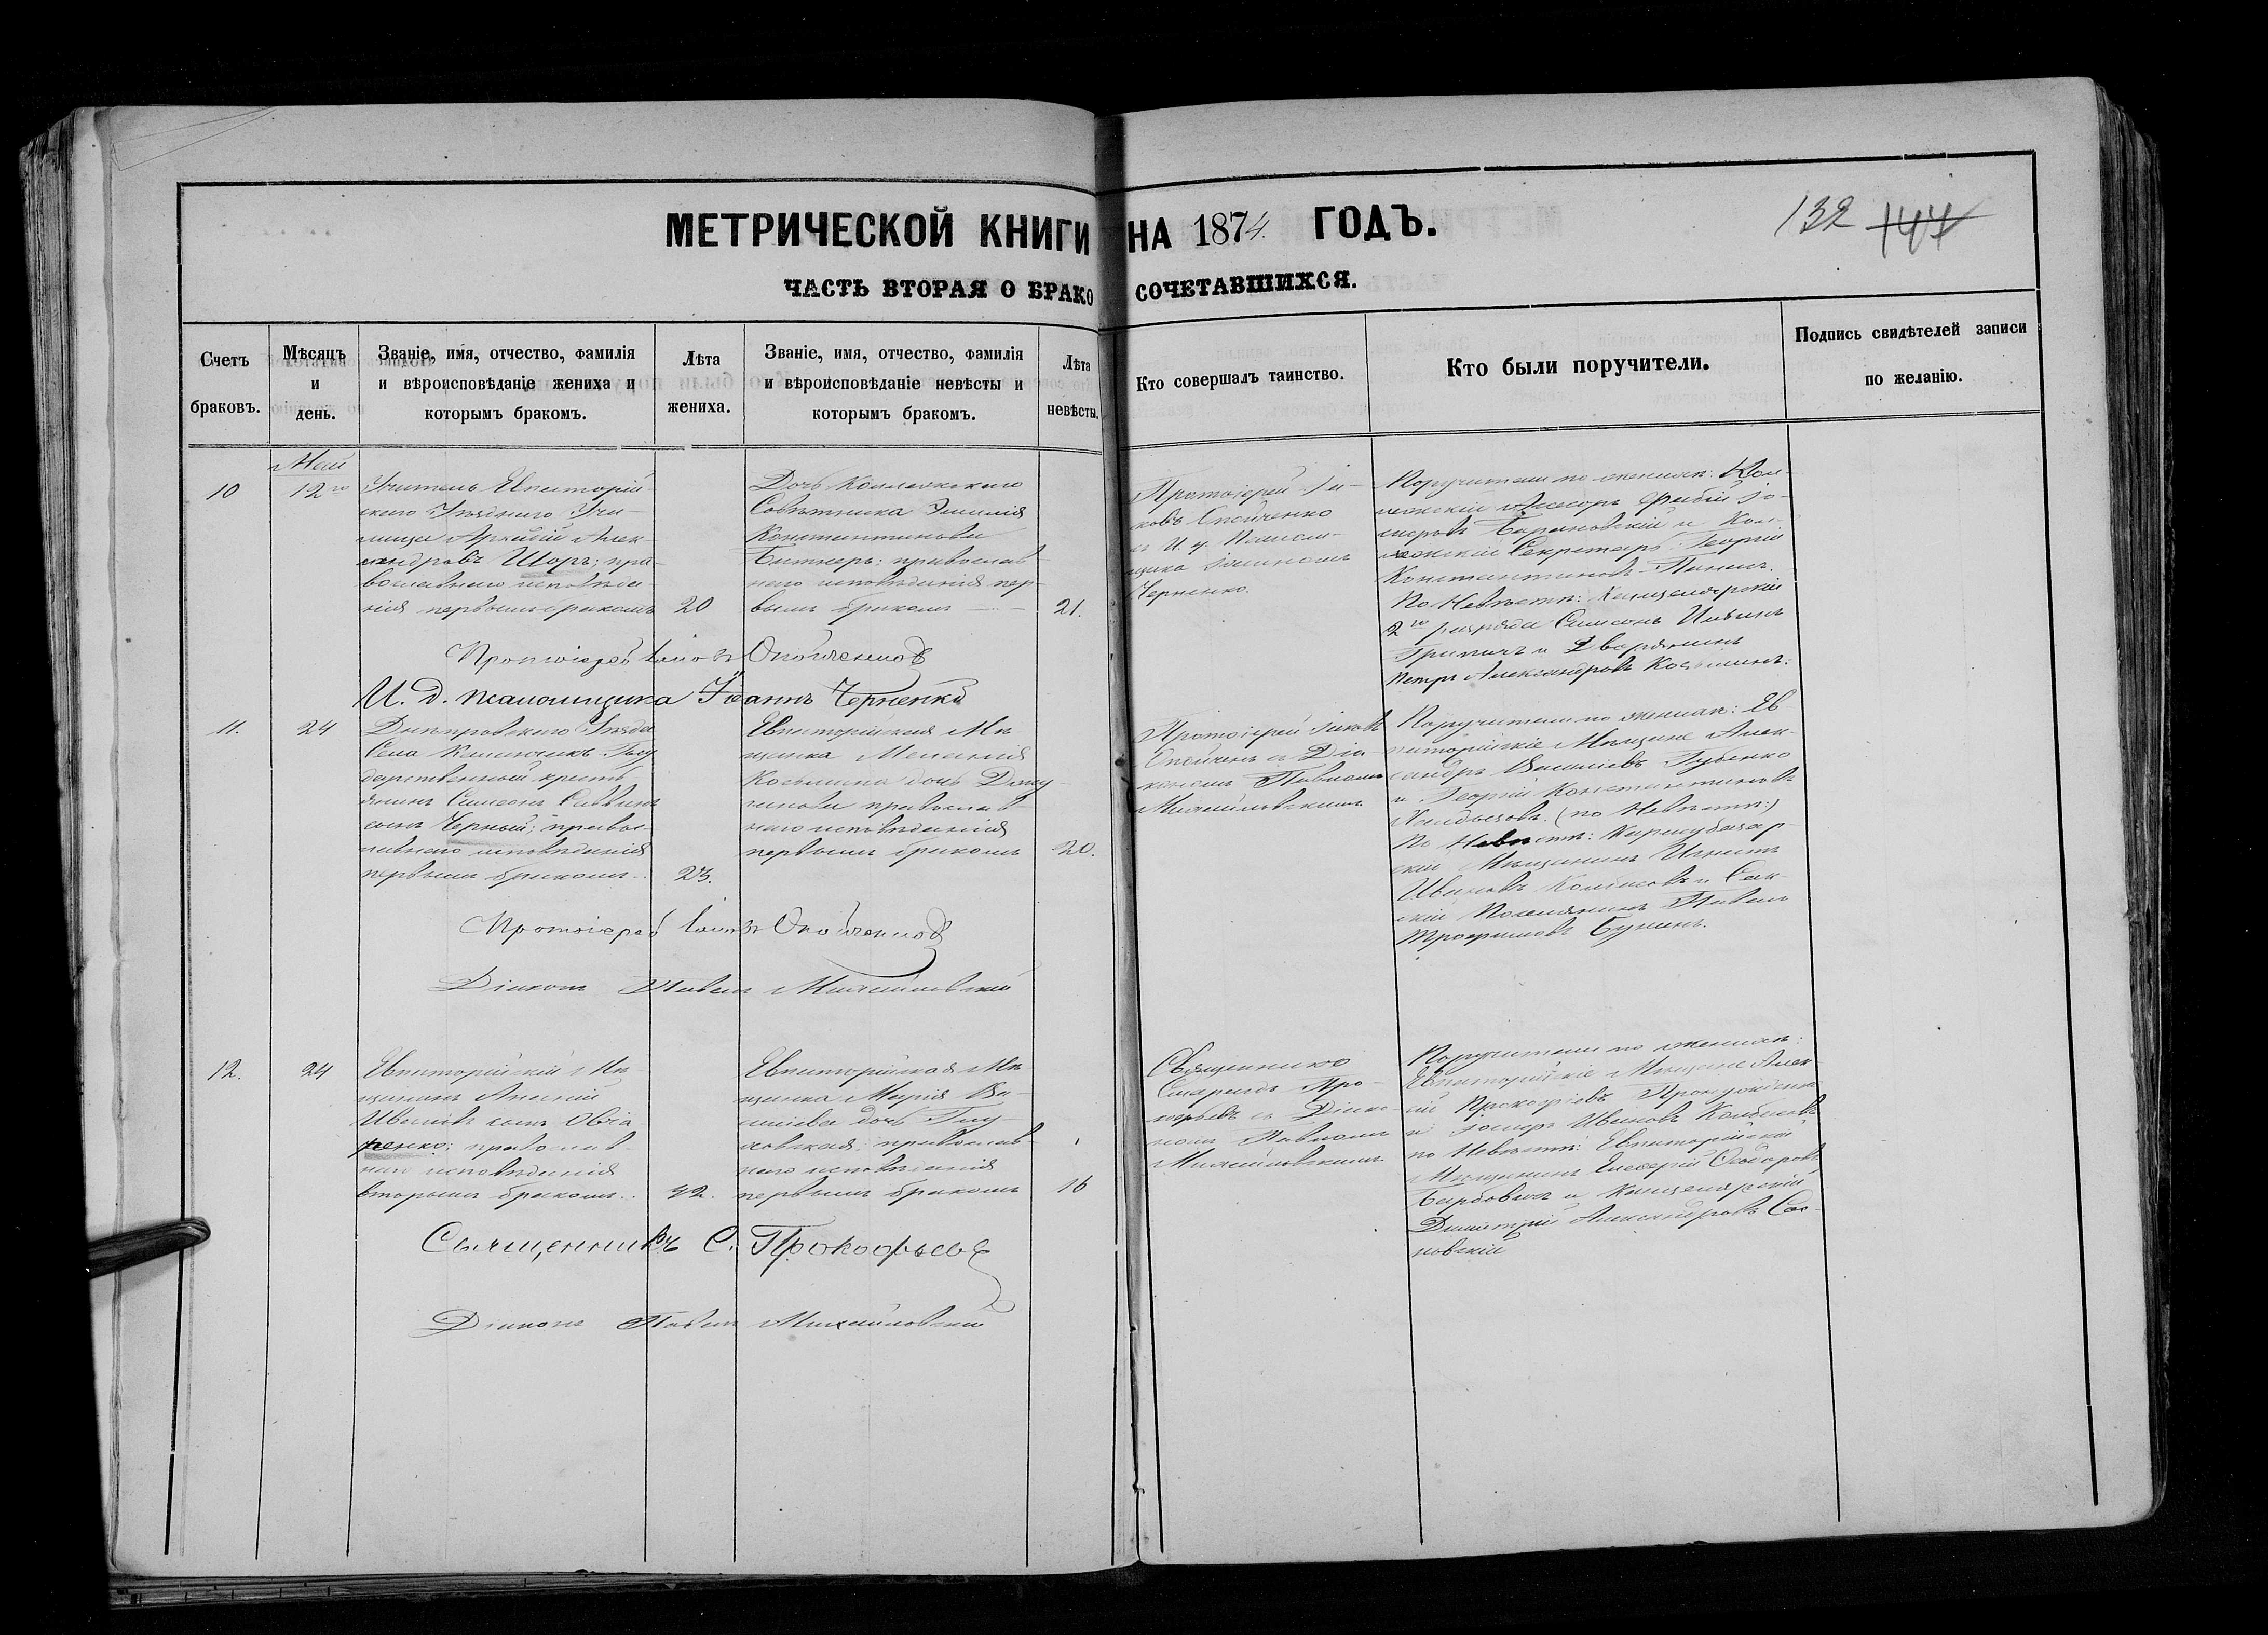 МЕТРИЧЕСКОЙ КНИГИ НА 1874. ГОДЪ.
132 144
ЧАСТЬ ВТОРАЯ О БРАКОСОЧЕТАВШИХСЯ.
Счетъ браковъ.
Мѣсяцъ и день.
Званіе, имя, отчество, фамилія
и вѣроисповѣданіе жениха и
которымъ бракомъ.
Лѣта жениха.
Званіе, имя, отчество, фамилія
и вѣроисповѣданіе невѣсты и
которымъ бракомъ.
Лѣта невѣсты.
Кто совершалъ таинство.
Кто были поручители.
Подпись свидѣтелей записи
по желанію.
Май
10
12го
Учитель Евпаторій-
скаго Уѣзднаго Учи-
лища Аркадій Алек-
сандровъ Шоръ; пра-
вославнаго исповѣда-
нія первымъ бракомъ
20
Дочь Коллежскаго
Совѣтника Эмилія
Константинова
православ
наго исповѣданія пер-
вымъ бракомъ
21.
Протоіерей Іа-
ковъ
съ И. д. Псалом-
щика Іоанномъ
Черненко.
Поручители по женихѣ: Кол-
лежскій Асесоръ Фабій Іо-
сифовъ Барановскій и Кол-
лежскій Секретарь Георгій
Константиновъ Панинъ.
По Невѣстѣ: Канцелярскій
2го разряда Симеонъ Ильинъ
и Дворянинъ
Петръ Александровъ
Протоіерей Іаковъ
И. д. псаломщика Іоаннъ Черненко
11.
24
Днѣпровскаго Уѣзда
Села Госу
дарственный кресть
янинъ Симеонъ Саввинъ
сынъ Черный; правос-
лавнаго исповѣданія
первымъ бракомъ.
23.
Евпаторійская Мѣ
щанка Меланія
Косьмина дочь
православ-
наго исповѣданія
первымъ бракомъ
20.
Протоіерей Іаковъ
съ Діа-
кономъ Павломъ
Михайловскимъ
Поручители по женихѣ: Ев
паторійскіе Мѣщане Алек-
сандръ Васильевъ Губенко
и Георгій Константиновъ
(по Невѣстѣ:)
По Невѣстѣ: Карасубазар-
скій Мѣщанинъ Игнатъ
Ивановъ Колбасовъ и Сак-
скій Поселянинъ Павелъ
Трофимовъ Бунинъ.
Протоіерей Іаковъ
Діаконъ Павелъ Михайловскій
12.
24
Евпаторійскій Мѣ
щанинъ
Ивановъ сынъ Овча
ренко; православ
наго исповѣданія
вторымъ бракомъ.
42.
Евпаторійская Мѣ
щанка Марія Ва-
сильева дочь
православ-
наго исповѣданія
первымъ бракомъ
16
Священникъ
Спиридъ Про-
кофьевъ съ Діако-
номъ Павломъ
Михайловскимъ
Поручители по женихѣ:
Евпаторійскіе Мѣщане Алек-
сій Прокофіевъ
и Іосифъ Ивановъ Колбасовъ
по Невѣстѣ: Евпаторійскій
Мѣщанинъ Елевферій Ѳеодоровъ
и Канцелярскій
Димитрій Александровъ Сос-
новскій
Священникъ С. Прокофьевъ
Діаконъ Павелъ Михайловскій